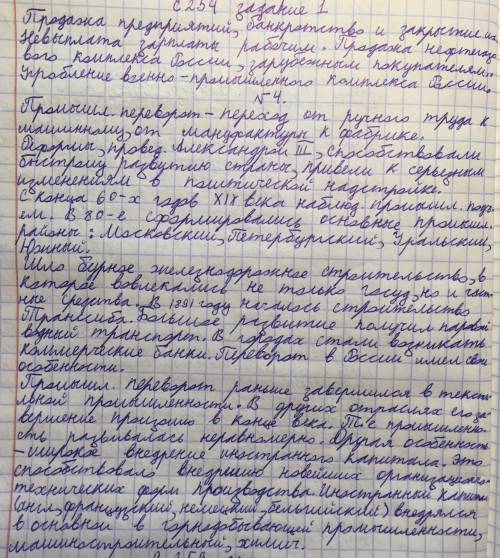 с 254 задание 1
Продажа предприятий, банкротство и закрытие их.
Невыплата зарплаты рабочим. Продажа нефтегазо
вого комплекса России, зарубежным покупателям.
Дробление военно-промышленного комплекса России.
№4.
Промышл. переворот - переход от ручного труда к
машинному, от мануфактуры к фабрике.
Реформы, провед. Александром III, способствовали
быстрому развитию страны, привели к серьезным
изменениям в политической надстройке.
С конца 60-х годов XIX века наблюд. промышл. подъ
ем. В 80-е сформировались основные промышл.
районы: Московский, Петербургский, Уральский,
Южный.
Шло бурное железнодорожное строительство, в
которое вовлекались не только госуд, но и част
ные средства. В 1891 году началось строительство
Транссиба. Большое развитие получил паровой
водный транспорт. В городах стали возникать
коммерческие банки. Переворот в России имел свои
особенности.
Промышл. переворот раньше завершился в тексти
льной промышленности. В других отраслях его за
вершение произошло в конце века. Т.е промышленно
сть развивалась неравномерно. Другая особенность
- широкое внедрение иностранного капитала. Это
способствовало внедрению новейших организацион
технических форм производства. Иностранный капитал
(англ, французский, немецкий, бельгийский) внедрялся
в основном в горнодобывающей промышленности,
машиностроительный, химич.